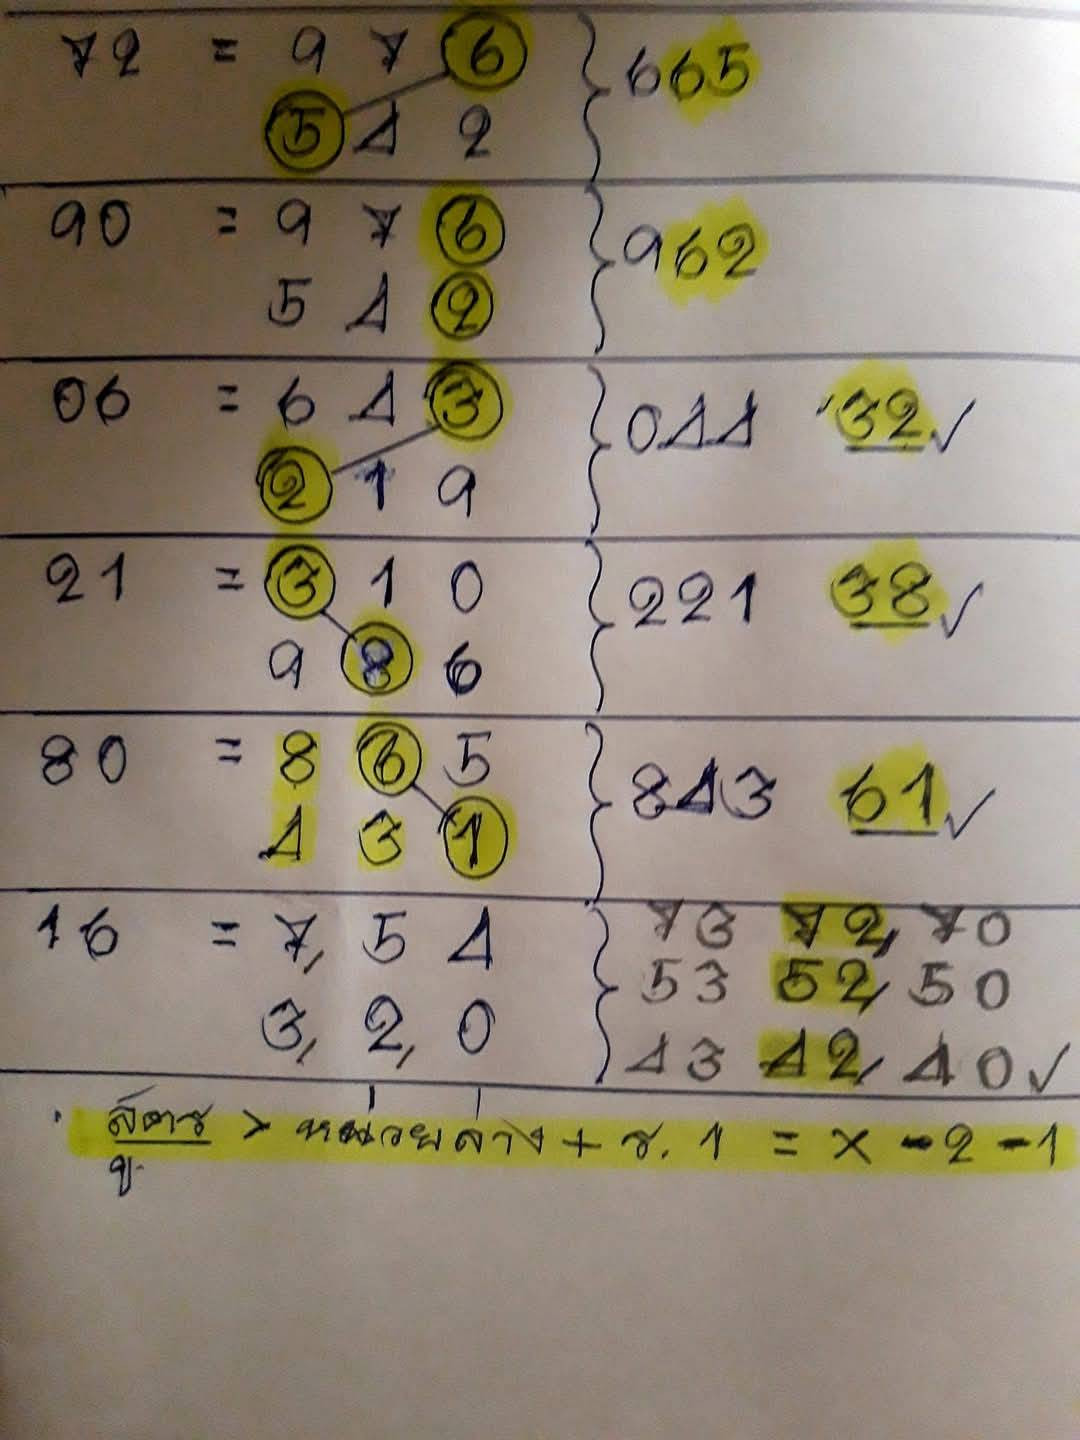 72 = 9 7 6 } 665
5 4 2
90 = 9 7 6 } 962
5 4 2
06 = 6 4 3 } 044 32✓
2 1 9
21 = 3 1 0 } 221 38✓
9 8 6
80 = 8 6 5 } 843 61✓
4 3 1
16 = 7, 5 4 } 73 72, 70
53 52, 50
3, 2, 0
43 42, 40✓
สูตร > หน่วยล่าง + ร. 1 = x - 2 - 1